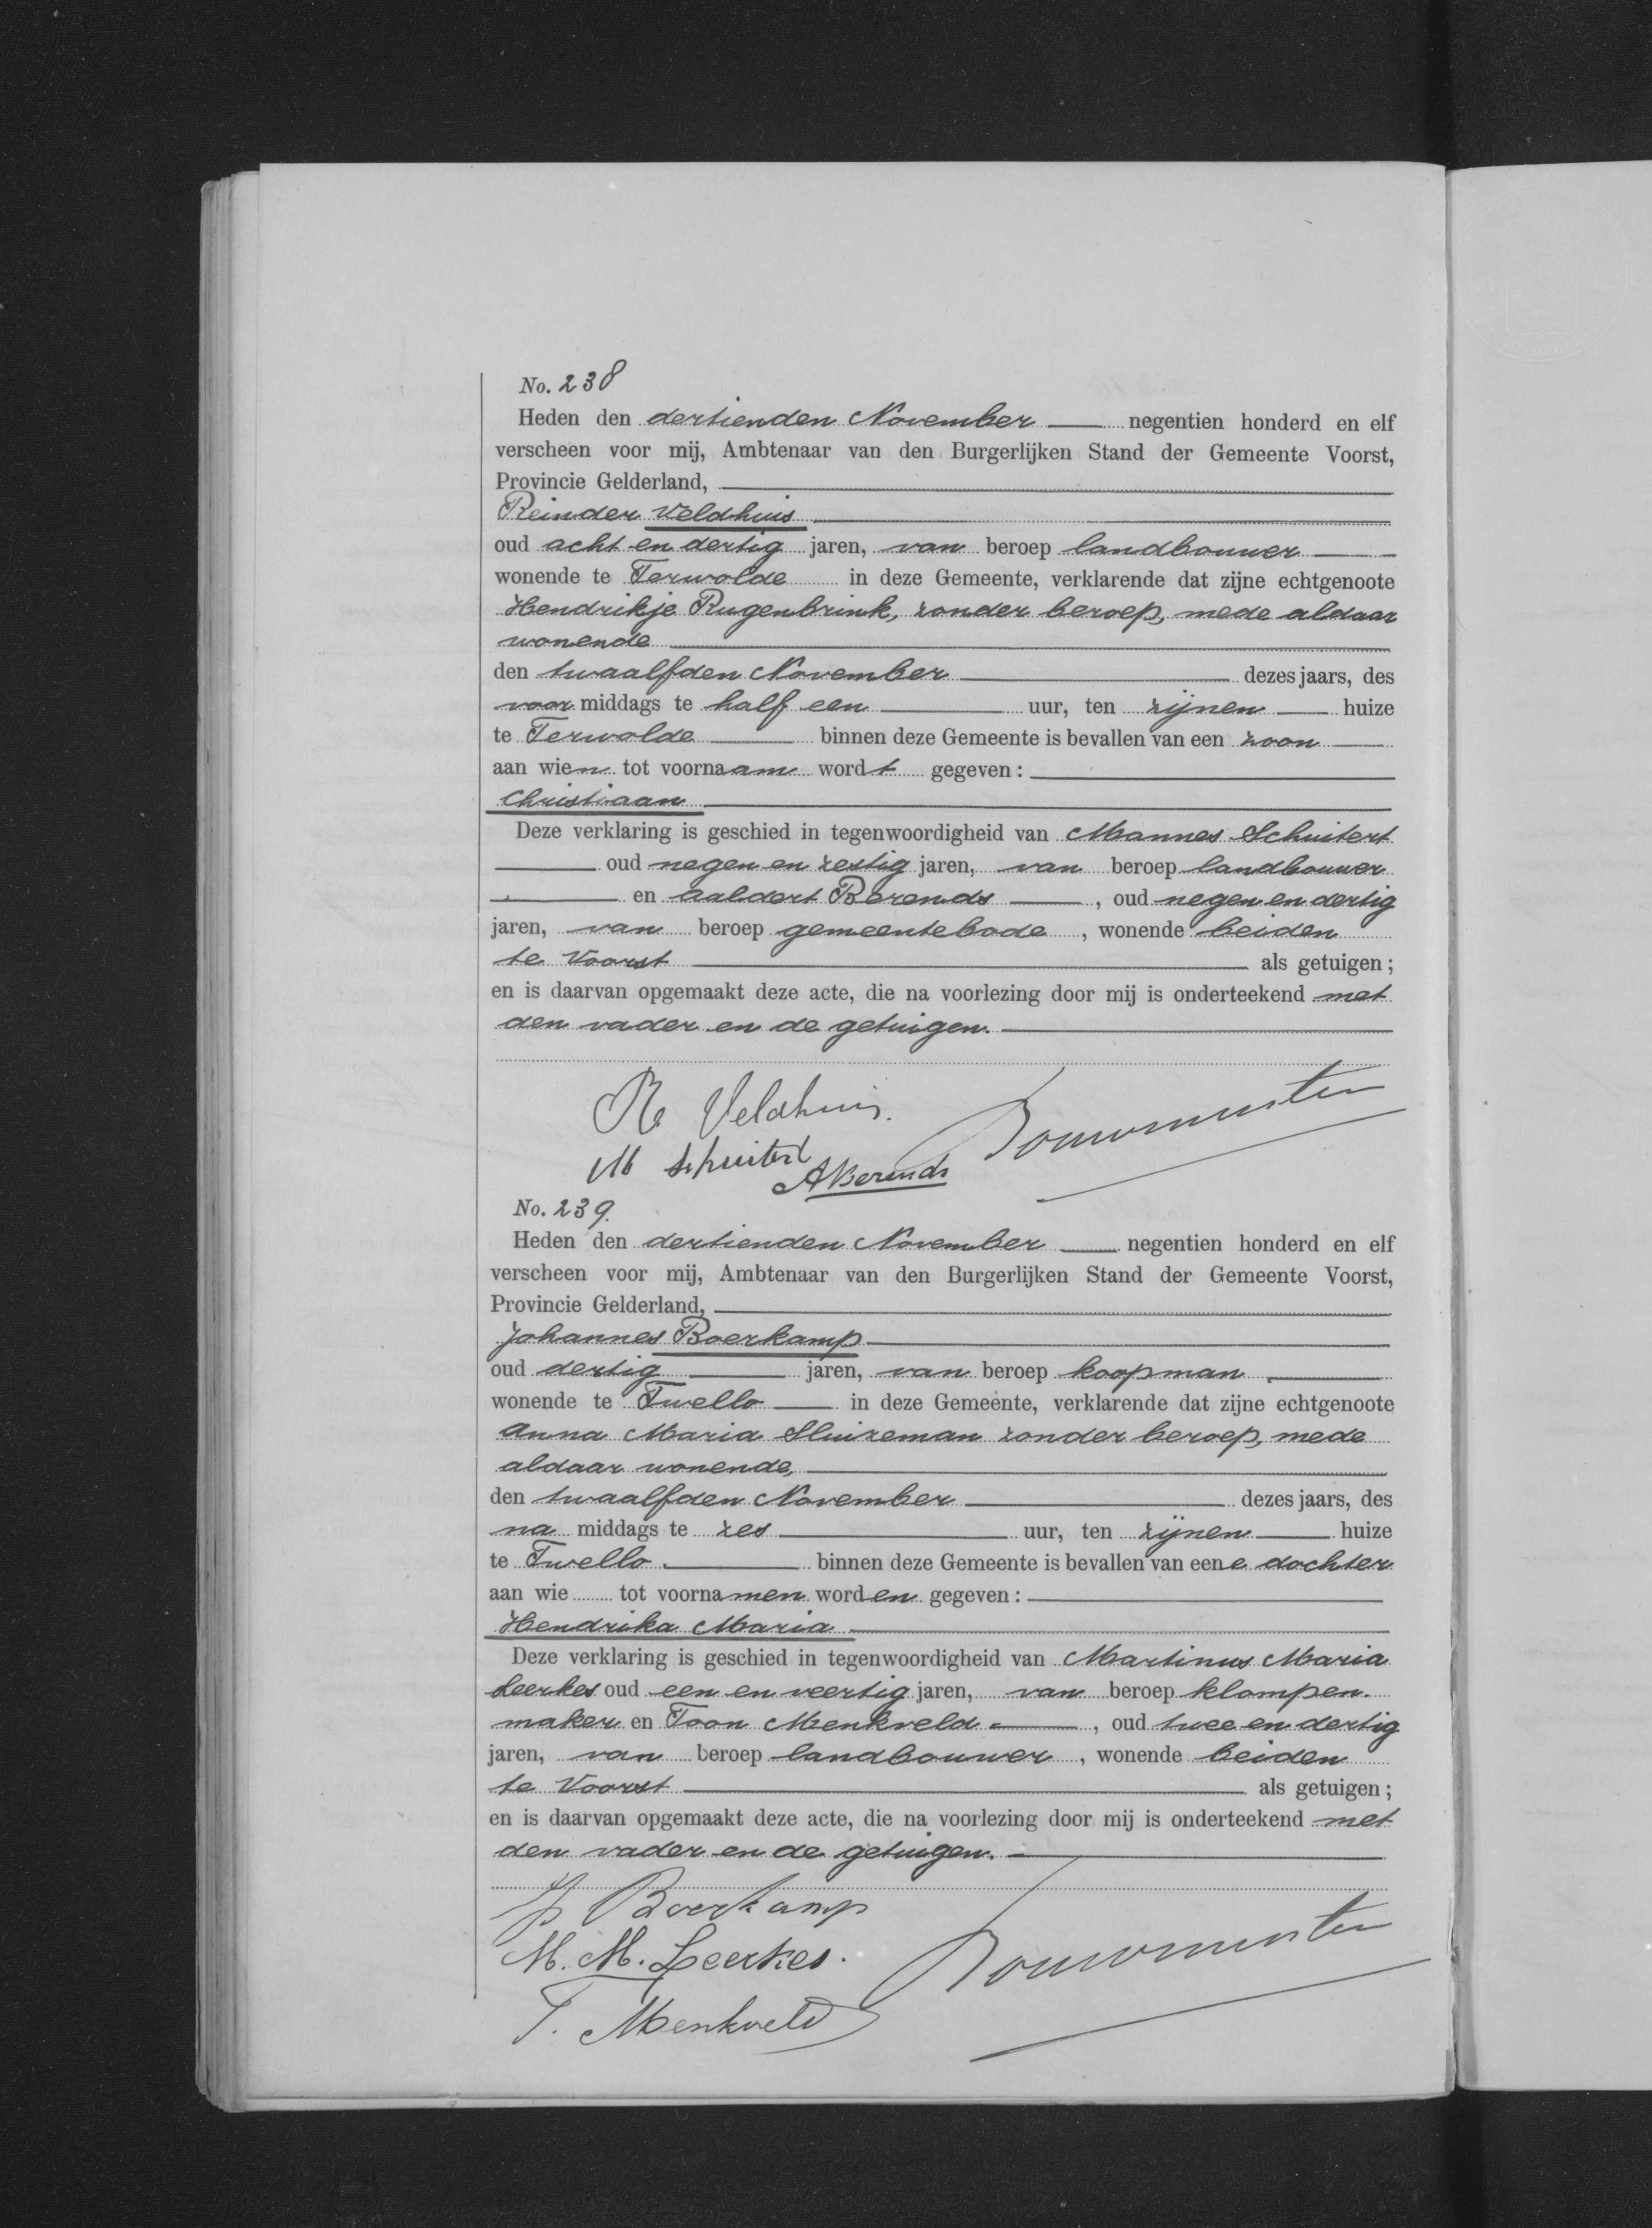 No. 238
Heden den dertienden November negentien honderd en elf
verscheen voor mij, Ambtenaar van den Burgerlijken Stand der Gemeente Voorst,
Provincie Gelderland,
Reinder Veldhuis
oud acht en dertig jaren, van beroep landbouwer
wonende te Terwolde in deze Gemeente, verklarende dat zijne echtgenoote
Hendrikje Rugenbrink, zonder beroep, mede aldaar
wonende
den twaalfden November dezes jaars, des
voor middags te half een uur, ten zijnen huize
te Terwolde binnen deze Gemeente is bevallen van een zoon
aan wien tot voornaam wordt gegeven:
Christiaan
Deze verklaring is geschied in tegenwoordigheid van Mannes Schuitert
oud negen en zestig jaren, van beroep landbouwer
en Aaldert Berends, oud negen en dertig
jaren, van beroep gemeentebode, wonende beiden
te Voorst als getuigen;
en is daarvan opgemaakt deze acte, die na voorlezing door mij is onderteekend met
den vader en de getuigen.
R Veldhuis.
M Schuitert
ABerends
No. 239.
Heden den dertienden November negentien honderd en elf
verscheen voor mij, Ambtenaar van den Burgerlijken Stand der Gemeente Voorst,
Provincie Gelderland,
Johannes Boerkamp
oud dertig jaren, van beroep koopman
wonende te Twello in deze Gemeente, verklarende dat zijne echtgenoote
Anna Maria Sluizeman zonder beroep, mede
aldaar wonende,
den twaalfden November dezes jaars, des
na middags te zes uur, ten zijnen huize
te Twello binnen deze Gemeente is bevallen van eene dochter
aan wie tot voornamen worden gegeven:
Hendrika Maria
Deze verklaring is geschied in tegenwoordigheid van Martinus Maria
Leerkes oud een en veertig jaren, van beroep klompen-
maker en Toon Menkveld, oud twee en dertig
jaren, van beroep landbouwer, wonende beiden
te Voorst als getuigen;
en is daarvan opgemaakt deze acte, die na voorlezing door mij is onderteekend met
den vader en de getuigen.
Boerkamp
M. M. Leerkes.
T. Menkveld